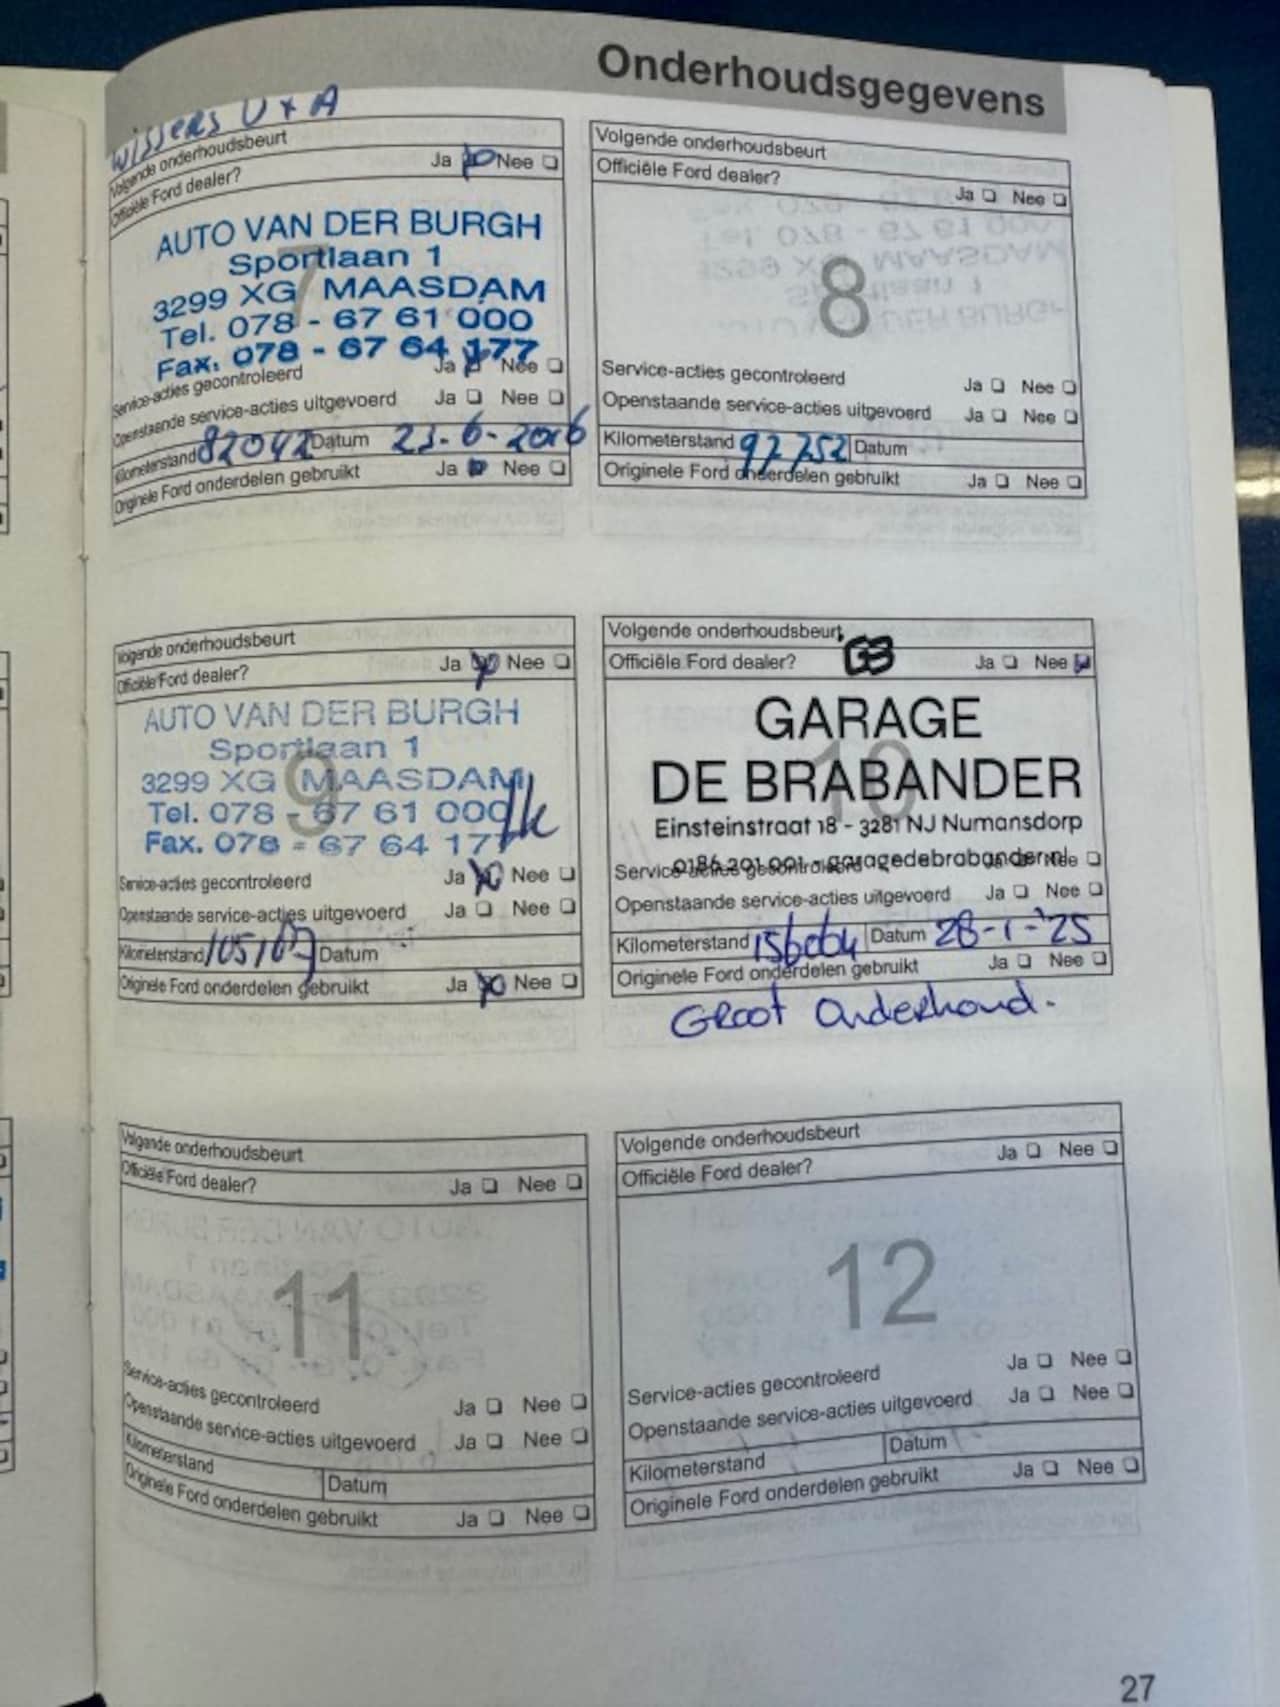 Onderhoudsgegevens
wissers V + A
Volgende onderhoudsbeurt
Officiële Ford dealer? Ja Nee
AUTO VAN DER BURGH
Sportlaan 1
3299 XG MAASDAM
7
Tel. 078 - 67 61 000
Fax. 078 - 67 64 177
Service-acties gecontroleerd Ja Nee
Openstaande service-acties uitgevoerd Ja Nee
Kilometerstand 82042 Datum 23-6-2016
Originele Ford onderdelen gebruikt Ja Nee
Volgende onderhoudsbeurt
Officiële Ford dealer? Ja Nee
8
Service-acties gecontroleerd Ja Nee
Openstaande service-acties uitgevoerd Ja Nee
Kilometerstand 97752 Datum
Originele Ford onderdelen gebruikt Ja Nee
Volgende onderhoudsbeurt
Officiële Ford dealer? Ja Nee
AUTO VAN DER BURGH
Sportlaan 1
3299 XG MAASDAM
9
Tel. 078 - 67 61 000
Fax. 078 - 67 64 177
Service-acties gecontroleerd Ja Nee
Openstaande service-acties uitgevoerd Ja Nee
Kilometerstand Datum
Originele Ford onderdelen gebruikt Ja Nee
Volgende onderhoudsbeurt
Officiële Ford dealer? Ja Nee
GARAGE
DE BRABANDER
10
Einsteinstraat 18 - 3281 NJ Numansdorp
0186 391 001 - garagedebrabander.nl
Service-acties gecontroleerd Ja Nee
Openstaande service-acties uitgevoerd Ja Nee
Kilometerstand Datum 28-1-'25
Originele Ford onderdelen gebruikt Ja Nee
Groot Onderhoud.
Volgende onderhoudsbeurt
Officiële Ford dealer? Ja Nee
11
Service-acties gecontroleerd Ja Nee
Openstaande service-acties uitgevoerd Ja Nee
Kilometerstand Datum
Originele Ford onderdelen gebruikt Ja Nee
Volgende onderhoudsbeurt
Officiële Ford dealer? Ja Nee
12
Service-acties gecontroleerd Ja Nee
Openstaande service-acties uitgevoerd Ja Nee
Kilometerstand Datum
Originele Ford onderdelen gebruikt Ja Nee
27